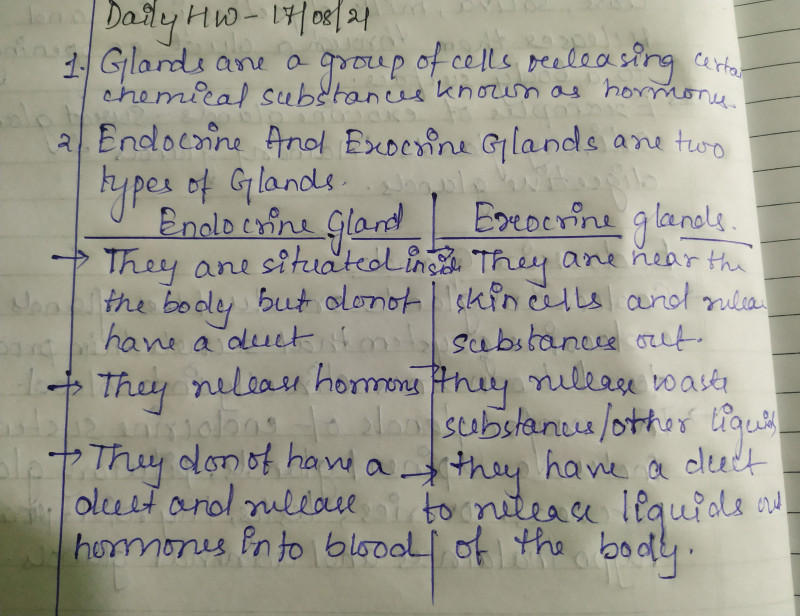 Daily HW - 17/08/21
1. Glands are a group of cells releasing certai
chemical substances known as hormones.
2 Endocrine And Exocrine Glands are two
types of Glands.
Endocrine gland | Exocrine glands.
→ They are situated inside → They are near the
the body but donot | skin cells and releas
have a duct | substances out.
→ They release hormons → they release waste
substances/other liquids
→ They donot have a → they have a duct
duct and release to release liquids out
hormones into blood of the body.